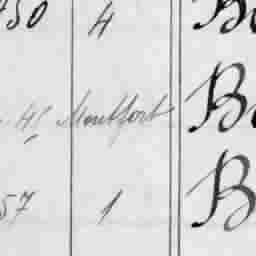 450 4 Bo
45 Montfort Ba
57 1 B